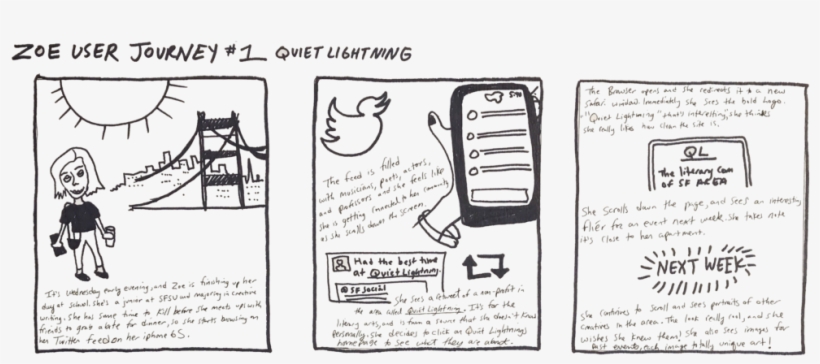 ZOE USER JOURNEY #1 QUIET LIGHTNING
It's Wednesday early evening, and Zoe is finishing up her
day at school. She's a junior at SFSU and majoring in creative
writing. She has some time to kill before she meets up with
friends to grab a bite for dinner, so she starts browsing on
her Twitter feed on her iphone 6S.
The feed is filled
with musicians, poets, actors,
and professors and she feels like
she is getting connected to her community
as she scrolls down the screen.
Had the best time
at Quiet Lightning
@SFSocial
She sees a retweet of a non-profit in
the area called Quiet Lightning. It's for the
literary arts, and is from a source that she doesn't know
personally. She decides to click on Quiet Lightning's
homepage to see what they are about.
The Browser opens and she redirects it to a new
Safari window. Immediately she sees the bold logo.
"Quiet Lightning" that's interesting, she thinks
she really likes how clean the site is.
QL
The literary
of SF AREA
She scrolls down the page, and sees an interesting
flier for an event next week. She takes note
it's close to her apartment.
NEXT WEEK
She continues to scroll and sees portraits of other
creatives in the area. They look really cool, and she
wishes she knew them! She also sees images for
past events, each image totally unique art!